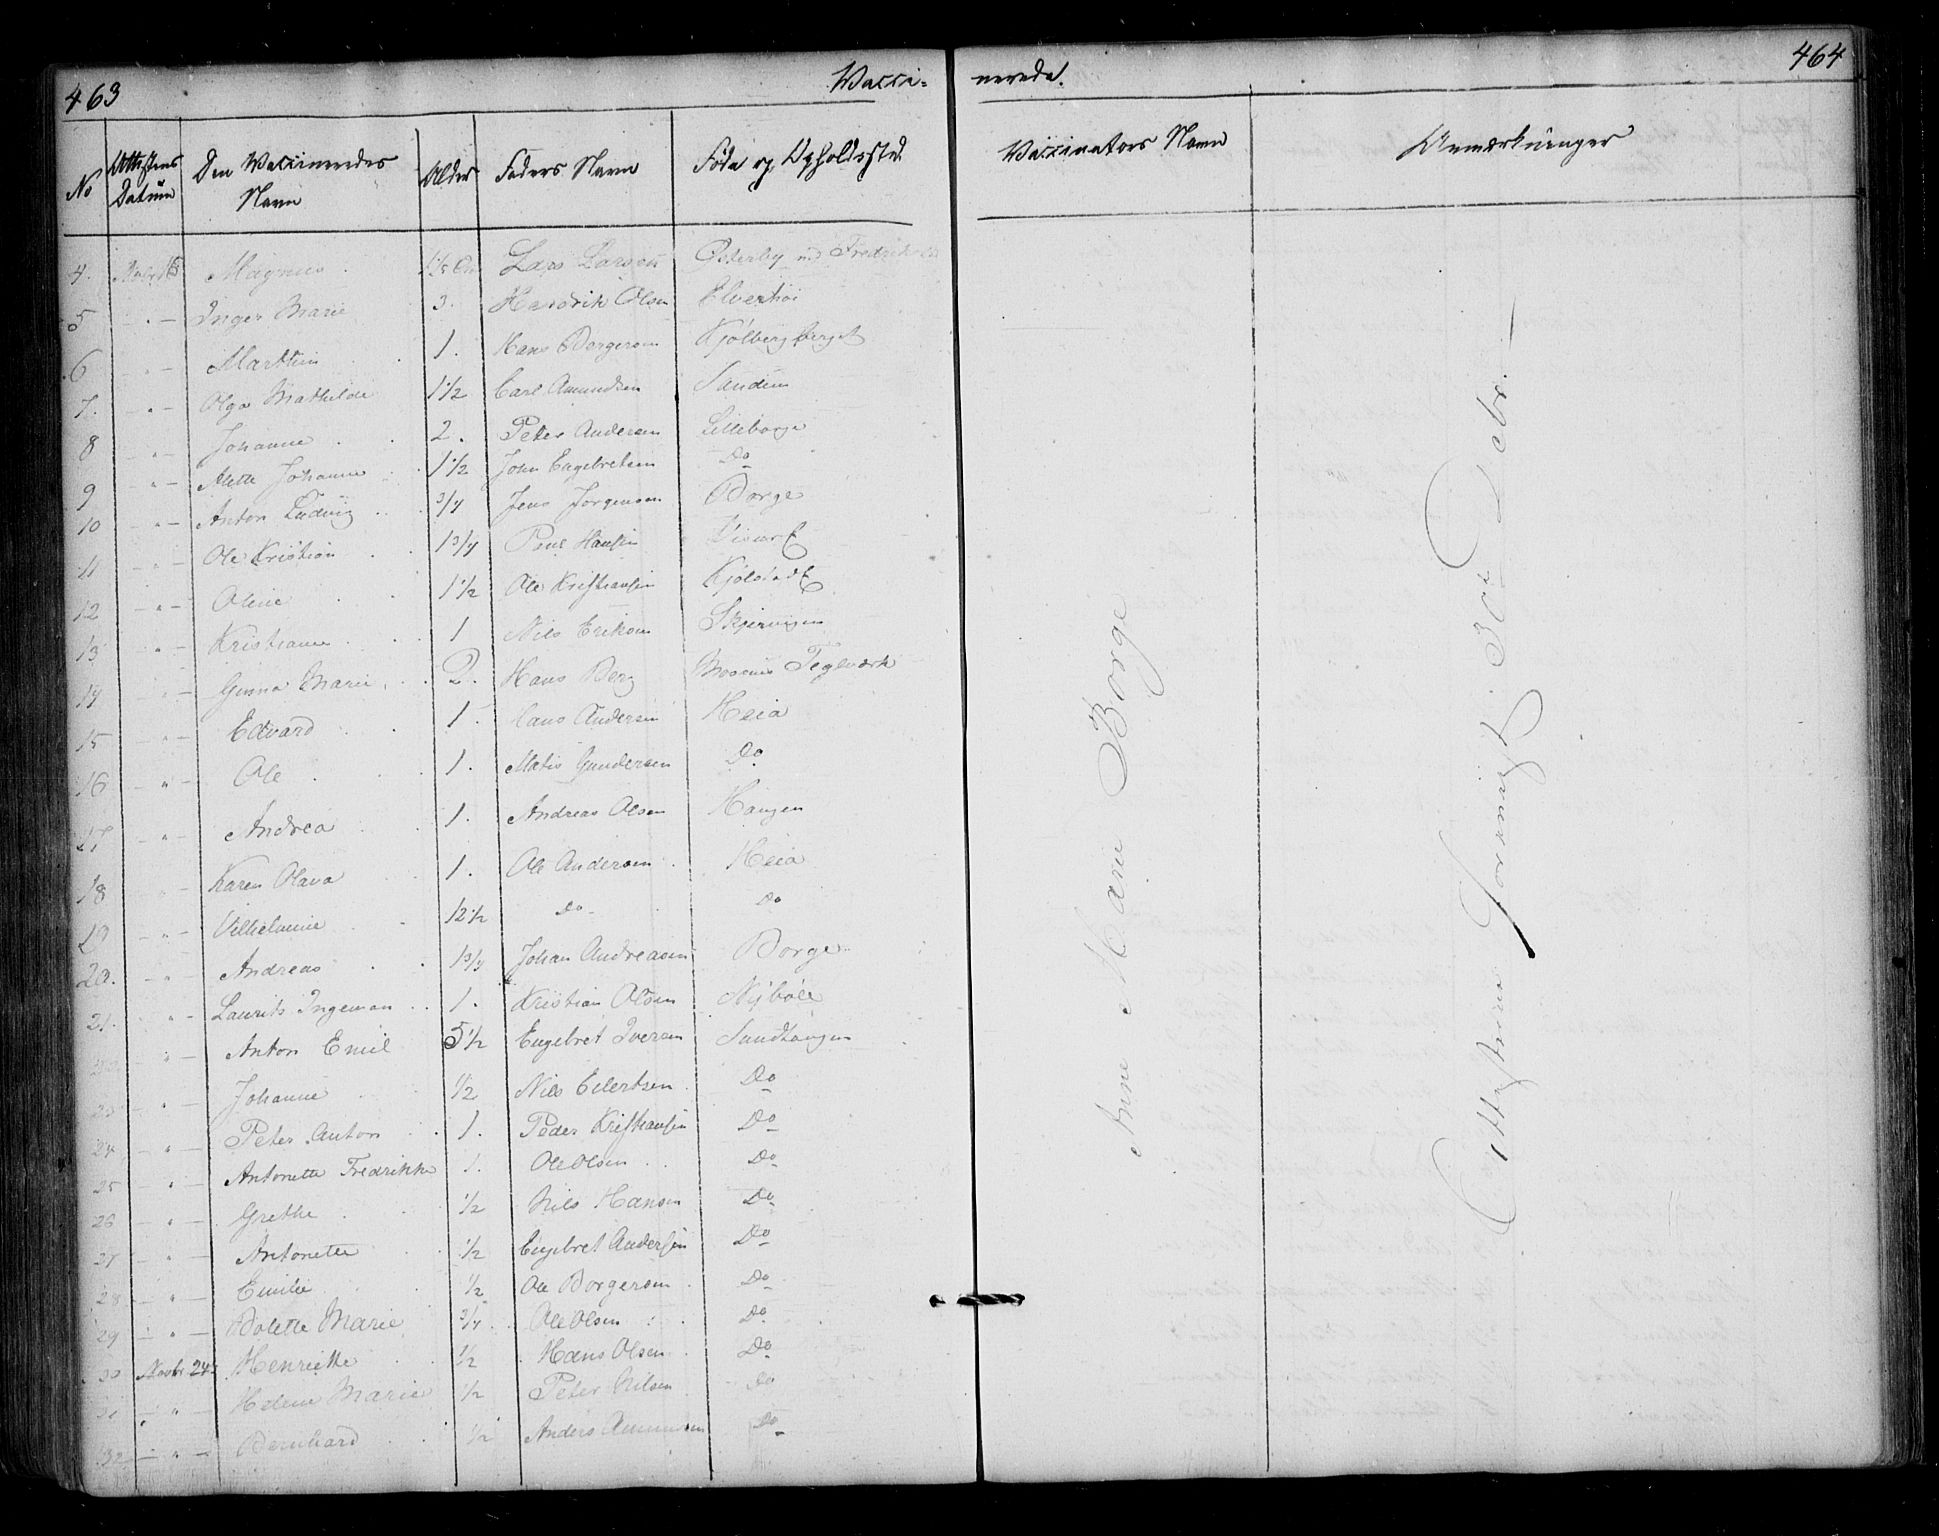 463 Vacci- nerede. 464
No Attestens Datum Den Vaccineredes Navn Alder Faders Navn Føde og Opholdssted Vaccinators Navn Anmærkninger
4. Magnus Lars Larsen Østerby
5 Inger Marie 3. Hendrik Olsen
6 Marthin 1. Hans Borgersen Kjølbergberget
7. Olga Mathilde 1 1/2 Carl Amundsen Sandem
8 Johanne 2. Peter Andersen Lilleborge
9 Alette Johanne 1 1/2 John Engebretsen Do
10 Anton Ludvig 3/4 Jens Jørgensen Borge
11 Ole Kristian 1 3/4 Hansen
12 Oline 1 1/2 Ole Kristiansen Kjølstad
13 Kristiane 1 Nils Eriksen
14 Marie 2. Hans Berg Teglværk
15 Edvard 1. Hans Andersen Heia
16 Ole 1. Matis Gundersen Do
17 Andrea 1. Andreas Olsen Haugen
18 Karen Olava 1. Ole Andersen Heia
19 Vilhelmine 12 1/2 Do Do
20. Andreas 1 3/4 Johan Andreasen Borge
21. Laurits Ingeman 1. Kristian Olsen Nybøle
Anton Emil 5 1/2 Engebret Iversen Sandhaugen
23 Johanne 1/2 Nils Eilertsen Do
24 Peter Anton 1. Peder Kristiansen Do
25 Antonette Fredrikke 1. Ole Olsen Do
26 Grethe 1/2 Nils Hansen Do
27 Antonette 1/2 Engebret Andersen Do
28 Emilie 1/2 Ole Borgersen Do
29 Bolette Marie 3/4 Ole Olsen Do
30 Novbr 24 Henriette 1/2 Hans Olsen Do
31 Helene Marie 1/2 Peter Nilsen Do
32 Bernhard 1/2 Anders Amundsen Do
Anne Marie Borge
Attesterne forevist 30te Decbr.